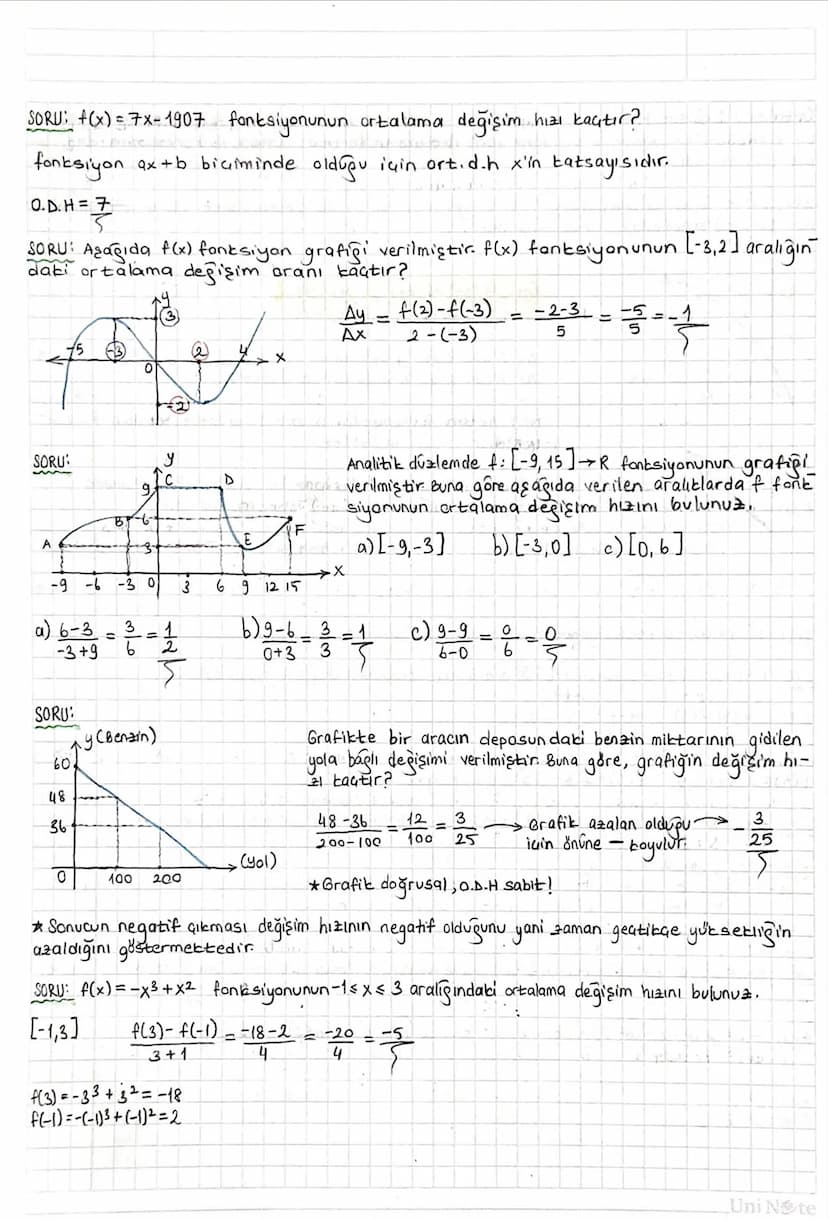 SORU: f(x) = 7x-1907 fonksiyonunun ortalama değişim hızı kaçtır?
fonksiyon ax+b biçiminde olduğu için ort.d.h x'in katsayısıdır.
O.D.H = 7
SORU: Aşağıda f(x) fonksiyon grafiği verilmiştir. f(x) fonksiyonunun [-3,2] aralığın-
daki ortalama değişim oranı kaçtır?
y
3
-5 -3 2 4 x
0
-2
Δy/Δx = f(2)-f(-3)/2-(-3) = -2-3/5 = -5/5 = -1
SORU:
Analitik düzlemde f: [-9,15]→R fonksiyonunun grafiği
verilmiştir. Buna göre aşağıda verilen aralıklarda f fonk-
siyonunun ortalama değişim hızını bulunuz.
a) [-9,-3] b) [-3,0] c) [0,6]
y
9 C D
B 6 F
A 3 E
x
-9 -6 -3 0 3 6 9 12 15
a) 6-3/-3+9 = 3/6 = 1/2 b) 9-6/0+3 = 3/3 = 1 c) 9-9/6-0 = 0/6 = 0
SORU:
y (Benzin)
60
48
36
0 100 200 (yol)
Grafikte bir aracın deposundaki benzin miktarının gidilen
yola bağlı değişimi verilmiştir. Buna göre, grafiğin değişim hı-
zı kaçtır?
48-36/200-100 = 12/100 = 3/25 → Grafik azalan olduğu → -3/25
için önüne - koyulur.
*Grafik doğrusal, O.D.H sabit!
* Sonucun negatif çıkması değişim hızının negatif olduğunu yani zaman geçtikçe yüksekliğin
azaldığını göstermektedir.
SORU: f(x) = -x³+x² fonksiyonunun -1 ≤ x ≤ 3 aralığındaki ortalama değişim hızını bulunuz.
[-1,3] f(3)-f(-1)/3+1 = -18-2/4 = -20/4 = -5
f(3) = -3³ + 3² = -18
f(-1) = -(-1)³+(-1)² = 2
Uni Note